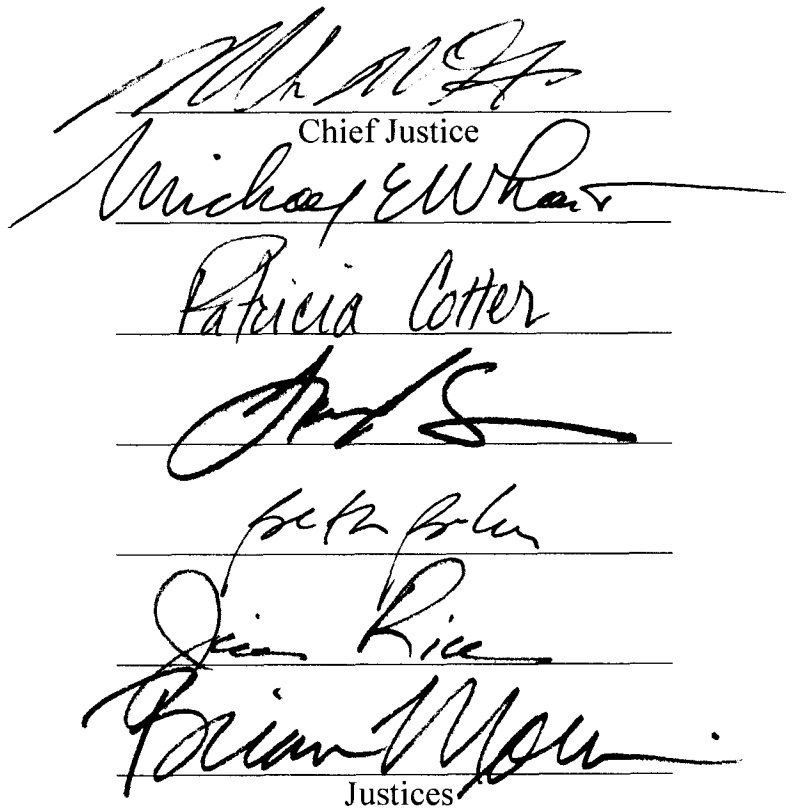 Chief Justice
Michael E Wheat
Patricia Cotter
Beth Baker
Jim Rice
Brian Morris
Justices